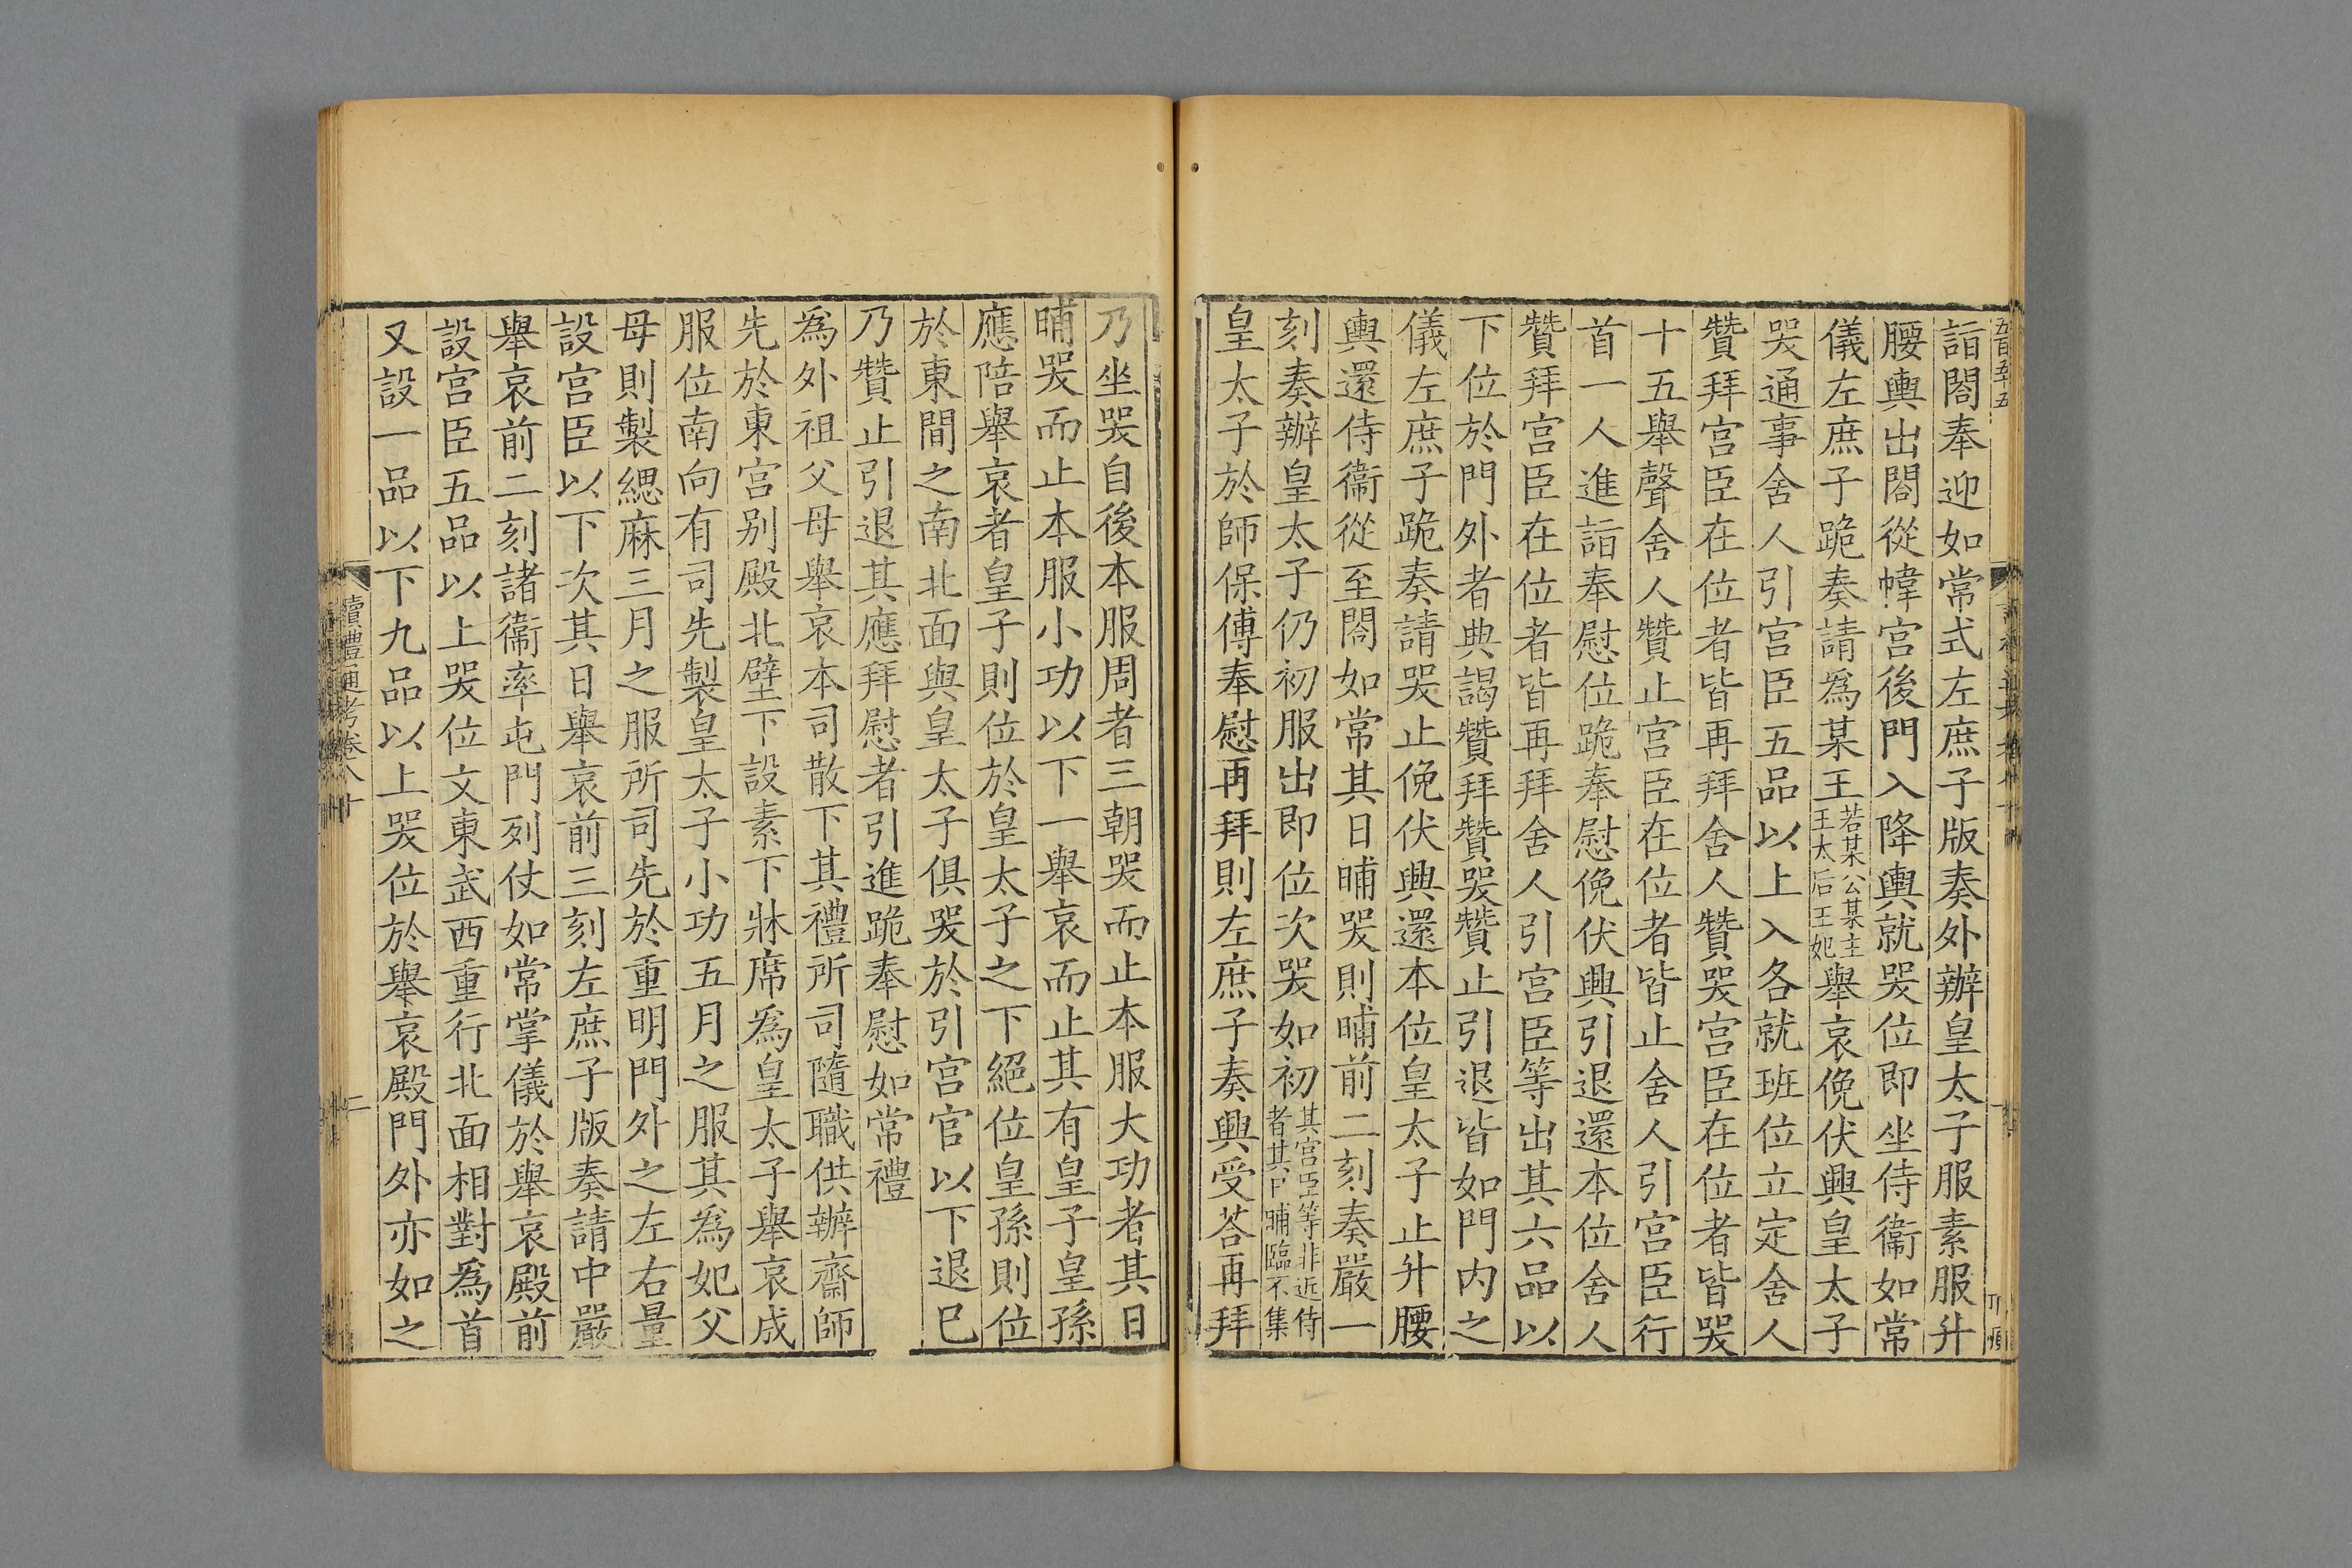 詣閤奉迎如常式左庶子版奏外辦皇太子服素服升
腰輿出閤從幃宮後門入降輿就哭位即坐侍衞如常
儀左庶子跪奏請爲某王若某公某主王太后王妃舉哀俛伏興皇太子
哭通事舍人引宮臣五品以上入各就班位立定舍人
贊拜宮臣在位者皆再拜舍人贊哭宮臣在位者皆哭
十五舉聲舍人贊止宮臣在位者皆止舍人引宮臣行
首一人進詣奉慰位跪奉慰俛伏興引退還本位舍人
贊拜宮臣在位者皆再拜舍人引宮臣等出其六品以
下位於門外者典謁贊拜贊哭贊止引退皆如門内之
儀左庶子跪奏請哭止俛伏興還本位皇太子止升腰
輿還侍衞從至閤如常其日晡哭則晡前二刻奏嚴一
刻奏辦皇太子仍初服出即位次哭如初其宮臣等非近侍者其日晡臨不集
皇太子於師保傅奉慰再拜則左庶子奏興受荅再拜
乃坐哭自後本服周者三朝哭而止本服大功者其日
晡哭而止本服小功以下一舉哀而止其有皇子皇孫
應陪舉哀者皇子則位於皇太子之下絕位皇孫則位
於東間之南北面與皇太子俱哭於引宮官以下退巳
乃贊止引退其應拜慰者引進跪奉慰如常禮
爲外祖父母舉哀本司散下其禮所司隨職供辦齋師
先於東宮别殿北壁下設素下牀席爲皇太子舉哀成
服位南向有司先製皇太子小功五月之服其爲妃父
母則製緦麻三月之服所司先於重明門外之左右量
設宮臣以下次其日舉哀前三刻左庶子版奏請中嚴
舉哀前二刻諸衞率屯門列仗如常掌儀於舉哀殿前
設宮臣五品以上哭位文東武西重行北面相對爲首
又設一品以下九品以上哭位於舉哀殿門外亦如之
續禮通考卷八十
二